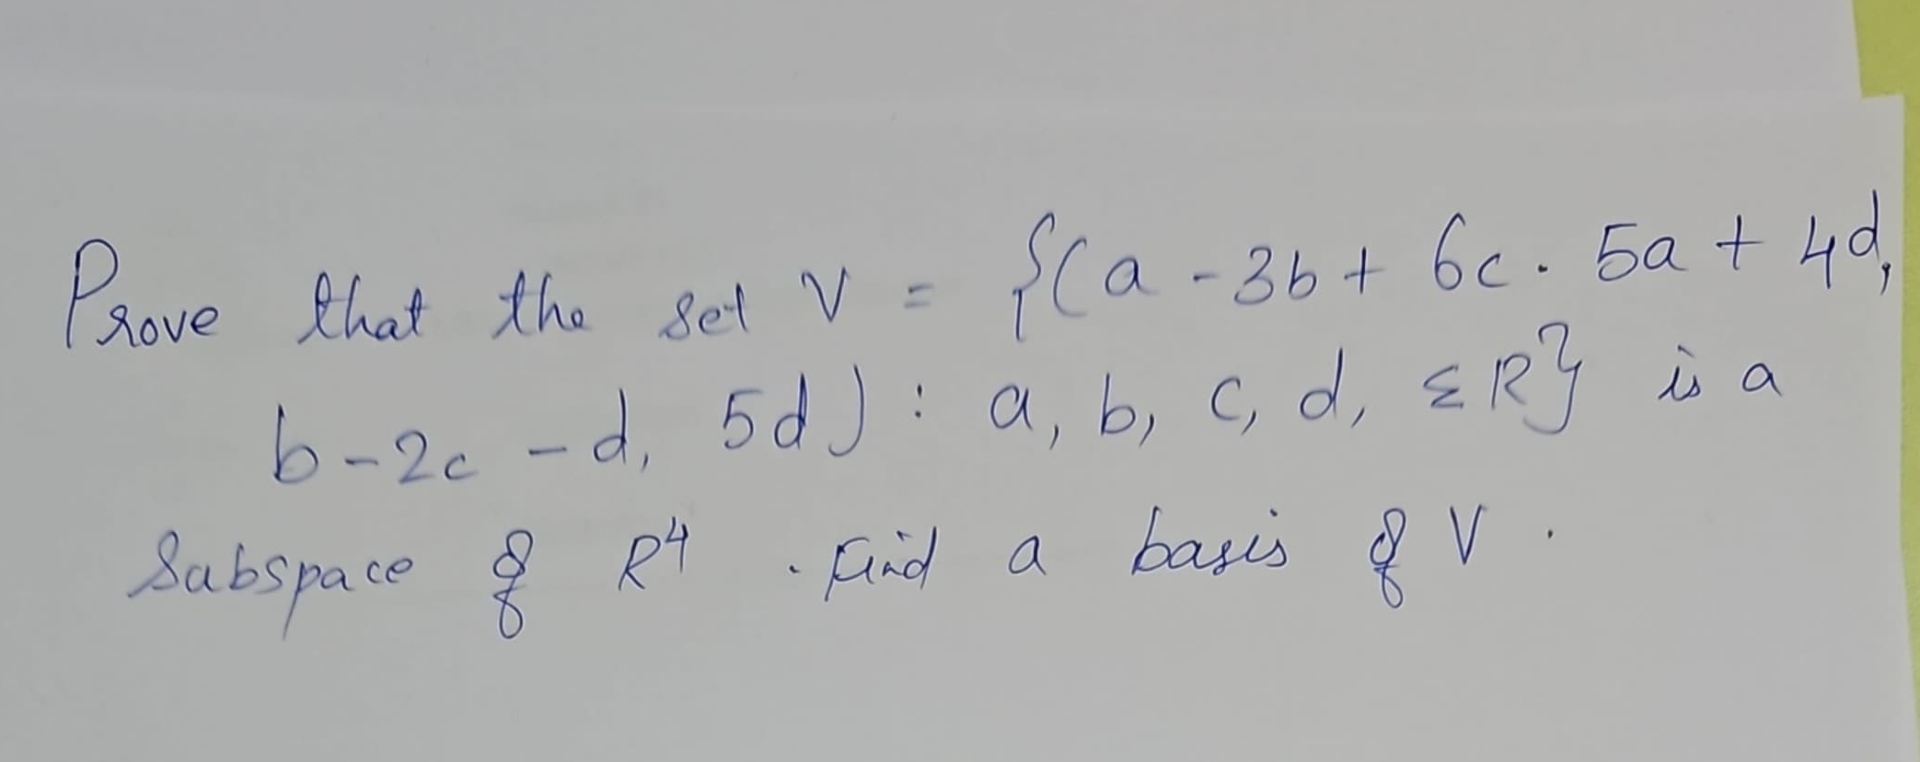 Prove that the set V = {(a - 3b + 6c . 5a + 4d,
b - 2c - d, 5d) : a, b, c, d, ε R} is a
Sabspace of R⁴ . Find a basis of V .